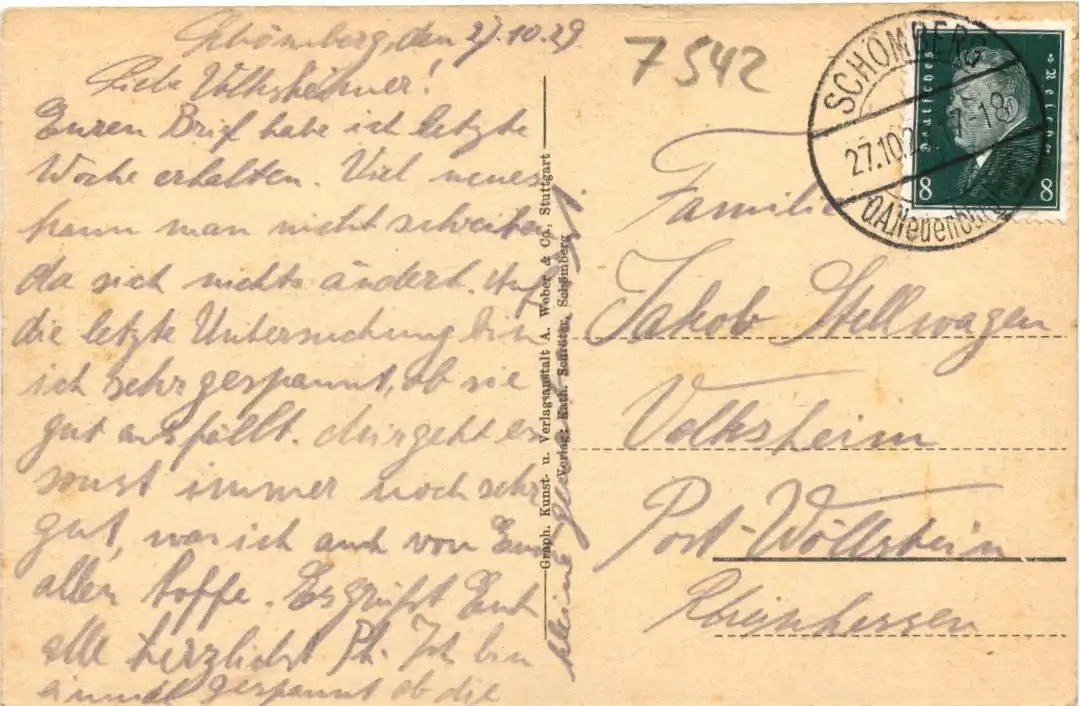 Schömberg, den 27.10.29
Liebe Volksheimer!
Euren Brief habe ich letzte
Woche erhalten. Viel neues
kann man nicht schreiben
da sich nichts ändert. Auf
die letzte Untersuchung bin
ich sehr gespannt, ob sie
gut ausfällt. Mir geht es
sonst immer noch sehr
gut, was ich auch von Euch
allen hoffe. Es grüßt Euch
alle herzlichst Ph. Ich bin
einmal gespannt ob die
kleine
Graph. Kunst- u. Verlagsanstalt A. Weber & Co., Stuttgart
Verlag: Kath. Schröter, Schömberg
7542
SCHÖMBERG
27.10.29 17-18
O.A. Neuenbürg
Deutsches Reich
8 8
Familie
Jakob Stellwagen
Volksheim
Post-Wöllstein
Rheinhessen